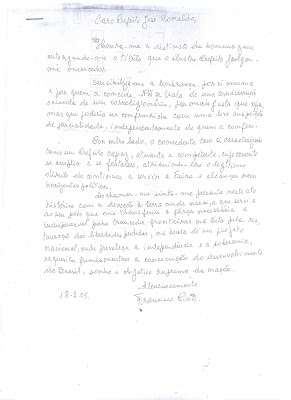 Caro Prefeito José Ronaldo,
Honra-me a distinção da homenagem
outorgando-me o título que o ilustre Prefeito julgou-
me merecedor.
Sensibiliza-me a lembrança, por si mesma
e por quem a concede. Não se trata de uma condecoração
oriunda de um correligionário, por mais justo que seja,
mas que poderia ser confundida com uma leve suspeição
de parcialidade, independentemente de quem a confere.
Por outro lado, o concedente tem se caracterizado
como um Prefeito capaz, atuante e competente, cujo
se amplia e se fortalece, atribuindo-lhe o legítimo
direito de continuar a servir a Feira e alcançar mais
horizontes políticos.
-me sinto-me presente neste ato
histórico com a devoção à terra onde nasci, a que servi e
ao seu povo que me transferiu a força necessária e
indispensável para transcender fronteiras na luta pela
das liberdades perdidas, na busca de um projeto
nacional, onde prevaleça a independência e a soberania,
requisitos fundamentais a consecução do desenvolvimento
do Brasil, sonho e objetivo supremo da nação.
Atenciosamente
18.9.05.
Francisco Pinto